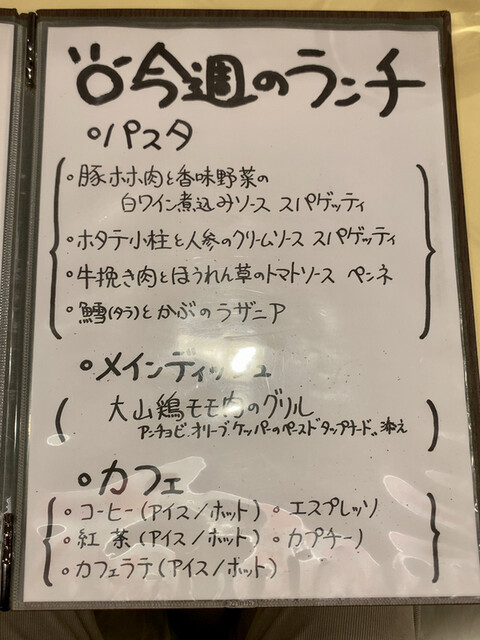 今週のランチ
○パスタ
・豚ホホ肉と香味野菜の
白ワイン煮込みソース スパゲッティ
・ホタテ小柱と人参のクリームソース スパゲッティ
・牛挽き肉とほうれん草のトマトソース ペンネ
・鱈(タラ)とかぶのラザニア
○メインディッシュ
大山鶏モモ肉のグリル
アンチョビ、オリーブ、ケッパーのペースト"タップナード"添え
○カフェ
・コーヒー(アイス/ホット) ・エスプレッソ
・紅茶(アイス/ホット) ・カプチーノ
・カフェラテ(アイス/ホット)